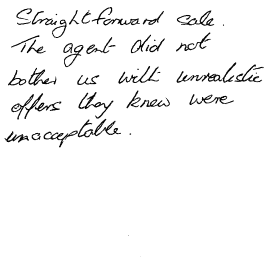 Straightforward sale.
The agent did not
bother us with unrealistic
offers they knew were
unacceptable.